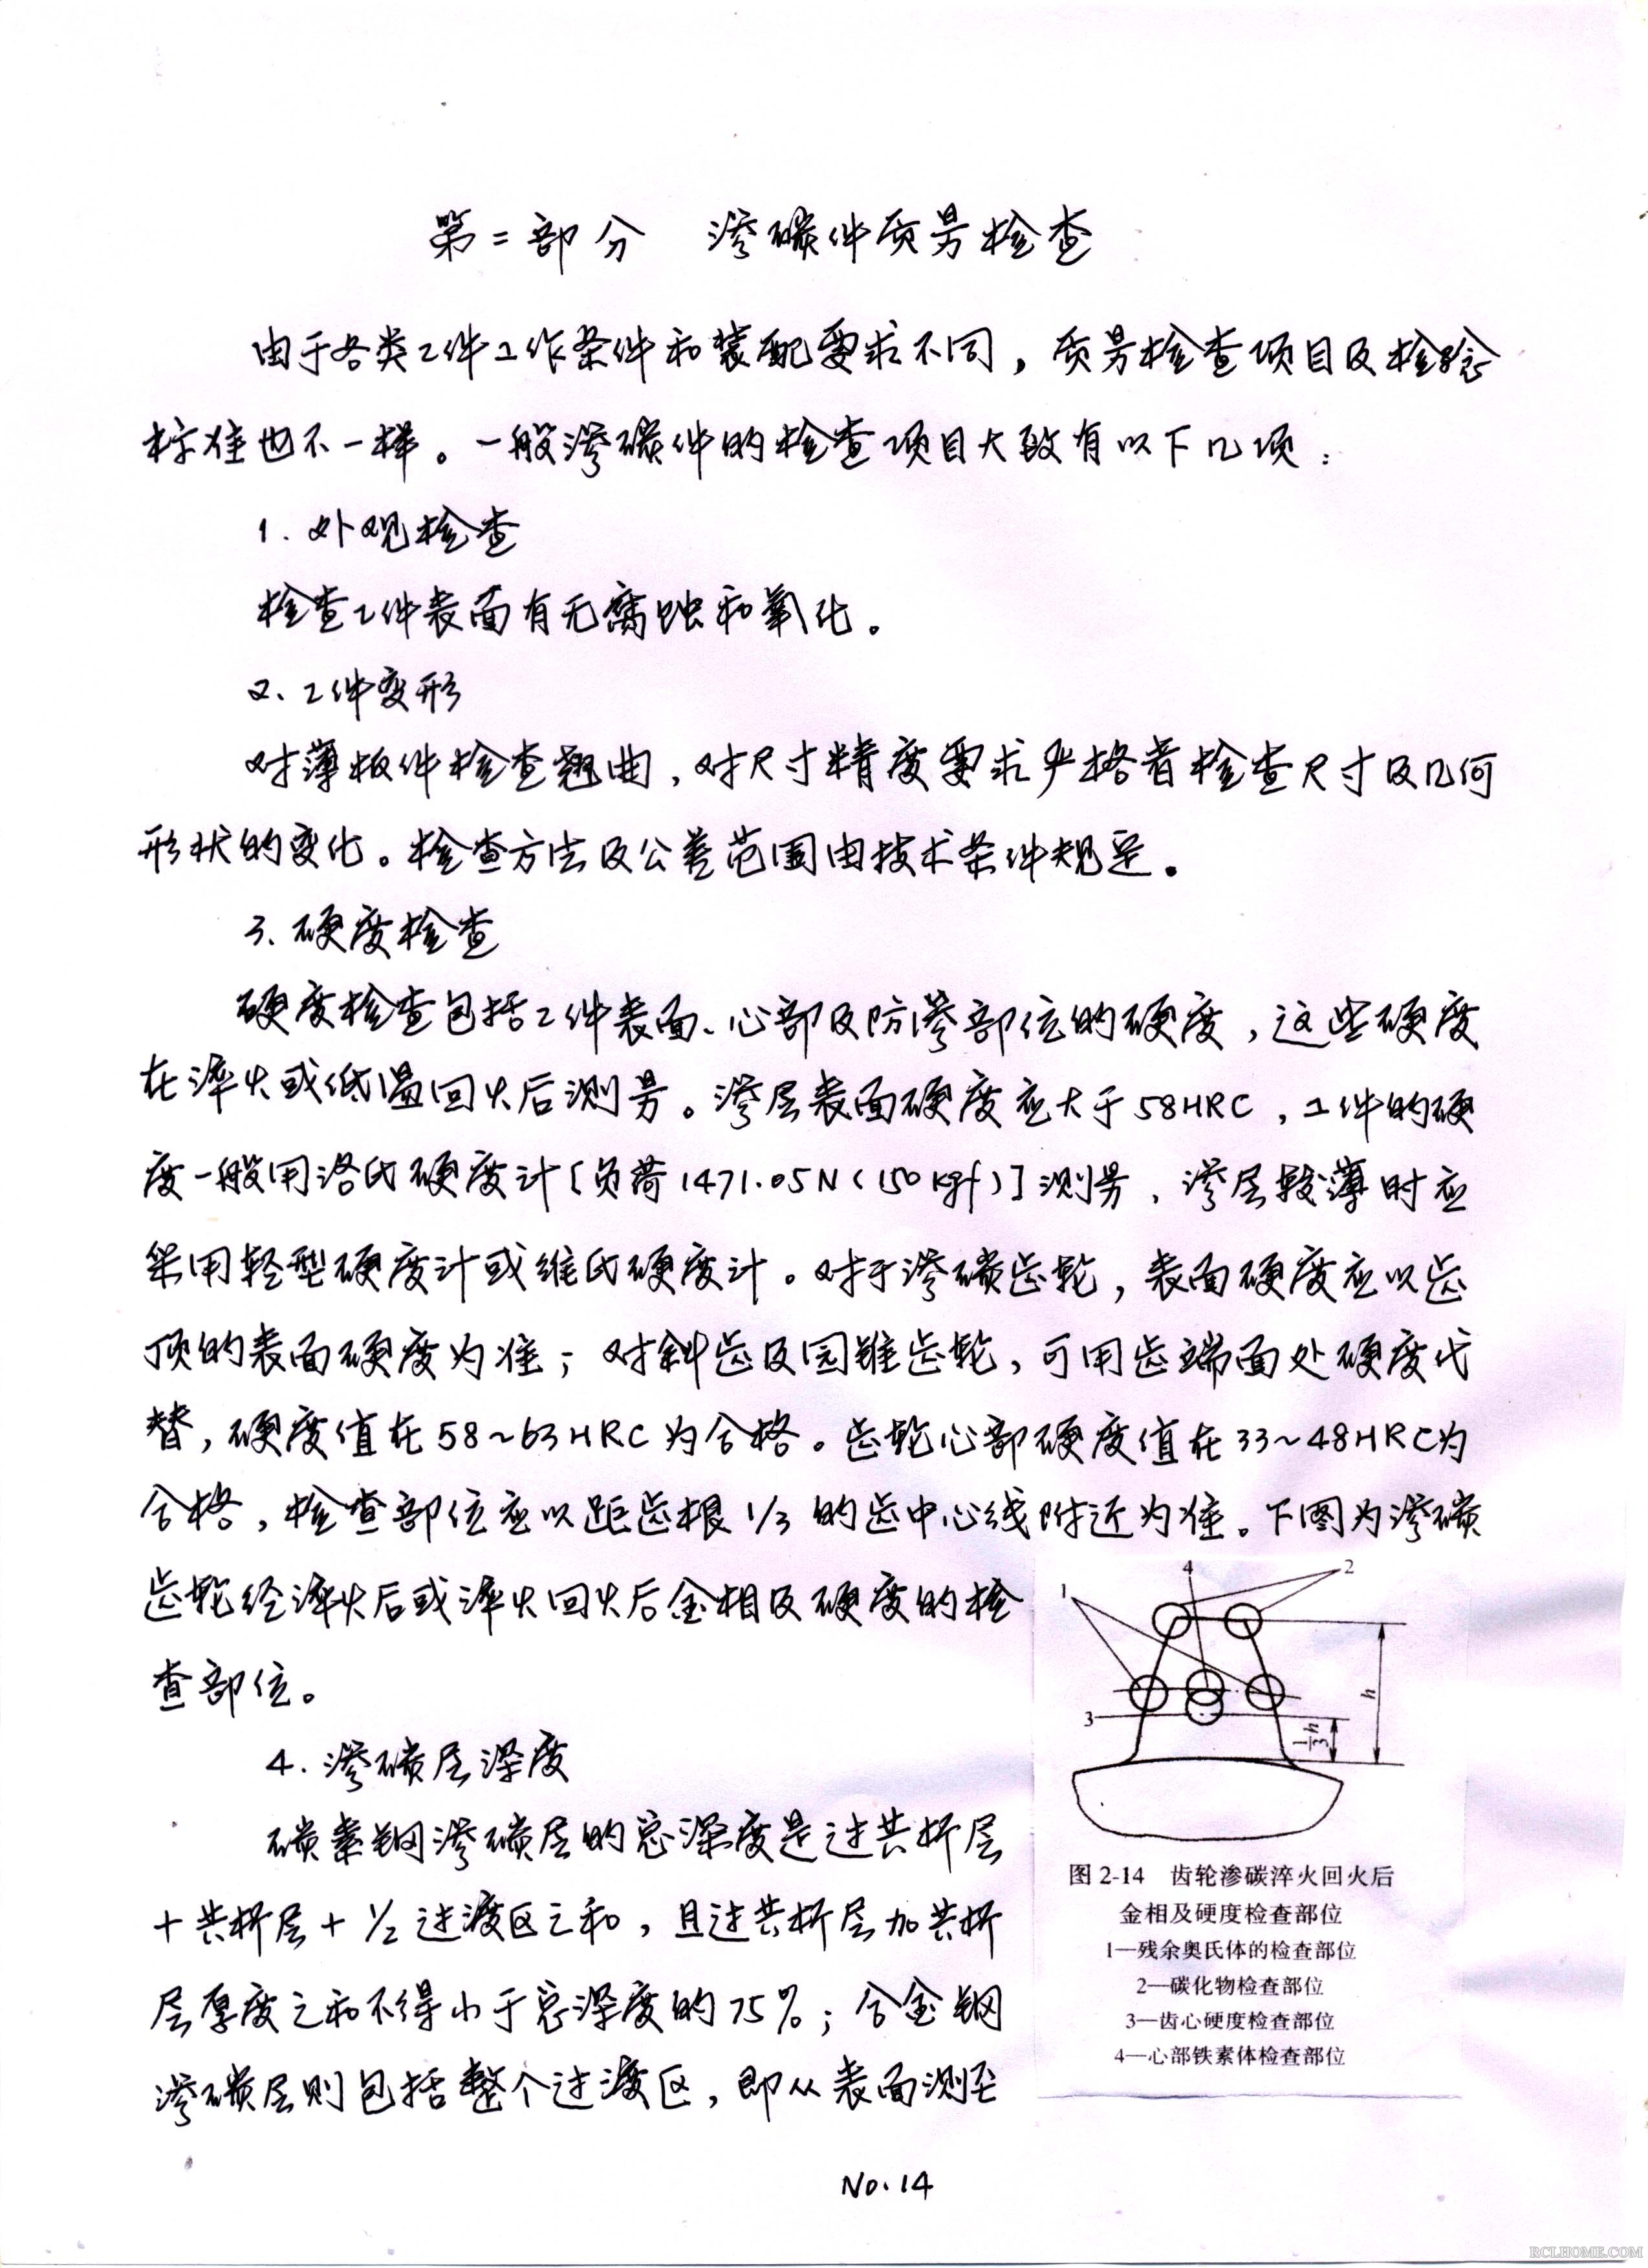 第二部分 渗碳件质量检查
由于各类工件工作条件和装配要求不同，质量检查项目及检验
标准也不一样。一般渗碳件的检查项目大致有以下几项：
1. 外观检查
检查工件表面有无腐蚀和氧化。
2、工件变形
对薄板件检查翘曲，对尺寸精度要求严格者检查尺寸及几何
形状的变化。检查方法及公差范围由技术条件规定。
3、硬度检查
硬度检查包括工件表面、心部及防渗部位的硬度，这些硬度
在淬火或低温回火后测量。渗层表面硬度应大于58HRC，工件的硬
度一般用洛氏硬度计[负荷1471.05N(150kgf)]测量，渗层较薄时应
采用轻型硬度计或维氏硬度计。对于渗碳齿轮，表面硬度应以齿
顶的表面硬度为准；对斜齿及园锥齿轮，可用齿端面处硬度代
替，硬度值在58~63HRC为合格。齿轮心部硬度值在33~48HRC为
合格，检查部位应以距齿根1/3的齿中心线附近为准。下图为渗碳
齿轮经淬火后或淬火回火后金相及硬度的检
查部位。
4. 渗碳层深度
碳素钢渗碳层的总深度是过共析层
+共析层+1/2过渡区之和，且过共析层加共析
层厚度之和不得小于总深度的75%；合金钢
渗碳层则包括整个过渡区，即从表面测至
1
4
2
3
h
1/3 h
图 2-14 齿轮渗碳淬火回火后
金相及硬度检查部位
1—残余奥氏体的检查部位
2—碳化物检查部位
3—齿心硬度检查部位
4—心部铁素体检查部位
No.14
RCLHOME.COM